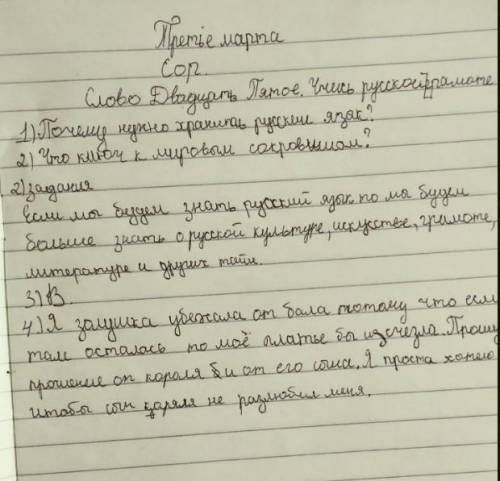 Третье марта
Сор.
Слово Двадцать Пятое. Учись русской грамате
1) Почему нужно хранить русский язык?
2) Что ключ к мировым сокровищом?
2) задания
Если мы будем знать русский язык то мы будем
больше знать о русской культуре, искустве, грамоте,
литературе и других тайн.
3) В.
4) Я залушка убежала от бала потому что если
там осталась то моё платье бы изсчезла. Прошу
прошение от короля и от его сына. Я проста хотела
штобы сын короля не разлюбил меня.